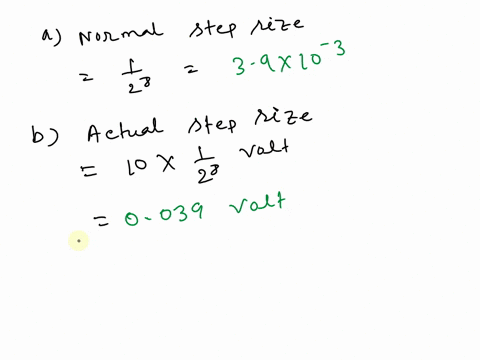 a) Normal step size
= 1/2⁸ = 3.9×10⁻³
b) Actual step size
= 10 × 1/2⁸ volt
= 0.039 volt